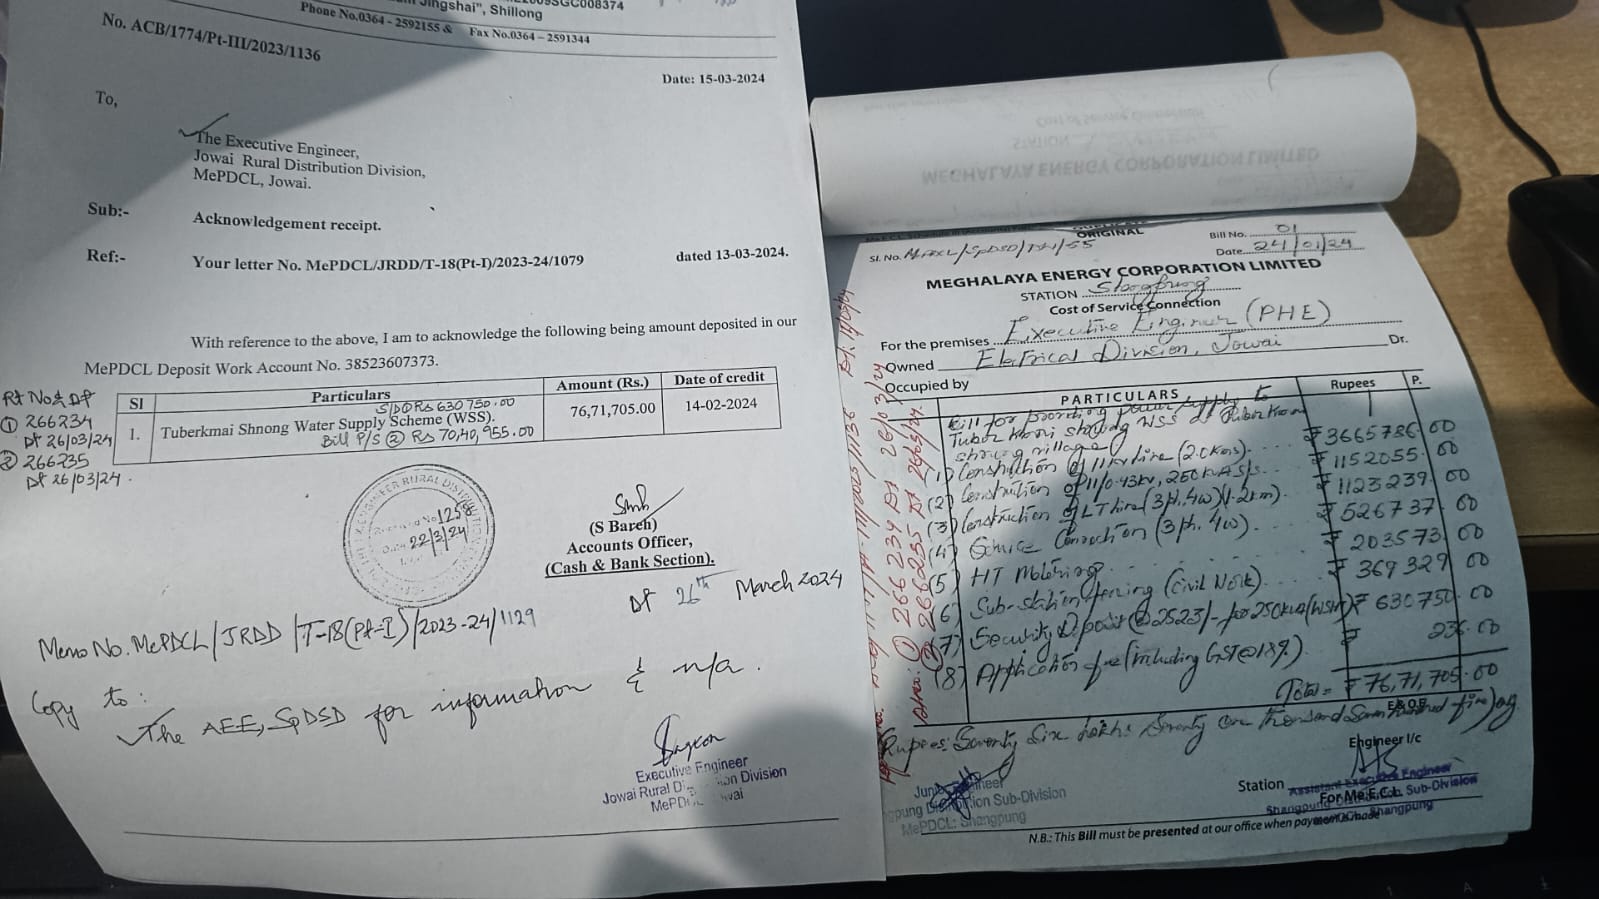 Jingshai", Shillong
Phone No.0364 - 2592155 & Fax No.0364 – 2591344
No. ACB/1774/Pt-III/2023/1136
Date: 15-03-2024
To,
The Executive Engineer,
Jowai Rural Distribution Division,
MePDCL, Jowai.
Sub:- Acknowledgement receipt.
Ref:- Your letter No. MePDCL/JRDD/T-18(Pt-I)/2023-24/1079 dated 13-03-2024.
With reference to the above, I am to acknowledge the following being amount deposited in our
MePDCL Deposit Work Account No. 38523607373.
Sl Particulars Amount (Rs.) Date of credit
S/D @ Rs 630750.00
1. Tuberkmai Shnong Water Supply Scheme (WSS). 76,71,705.00 14-02-2024
Bill P/S @ Rs 70,40,955.00
Rt No & Dt
① 266234
Dt 26/03/24
② 266235
Dt 26/03/24.
No 1258
22/3/24
(S Bareh)
Accounts Officer,
(Cash & Bank Section).
Dt 26th March 2024
Memo No. MePDCL/JRDD/T-18(Pt-I)/2023-24/1129
Copy to:
The AEE, SpDSD for information & n/a.
Executive Engineer
Jowai Rural Division
MePDCL
ORIGINAL
Sl. No. Bill No. 01
Date 24/01/24
MEGHALAYA ENERGY CORPORATION LIMITED
STATION Shangpung
Cost of Service Connection
For the premises Executive Engineer (PHE)
Owned Electrical Division, Jowai Dr.
Occupied by
PARTICULARS Rupees P.
Bill for providing power supply to
Tuber Kmai Shnong WSS at Tuber Kmai
Shnong village
(1) Construction of 11kv line (2.0kms). ₹ 3665786 00
(2) Construction of 11/0.43kv, 250kva S/s. ₹ 1152055 00
(3) Construction of LT line (3ph, 4w) (1.2km). ₹ 1123239 00
(4) Service Connection (3ph. 4w). ₹ 526737 00
(5) HT Metering ₹ 203573 00
(6) Sub-station fencing (Civil Work). ₹ 369329 00
(7) Security Deposit @ 2523/- for 250kva (WSH) ₹ 630750 00
(8) Application fee (including GST@18%). ₹ 236 00
Total = ₹ 76,71,705.00
E.&O.E.
Rupees: Seventy Six Lakhs Seventy One Thousand Seven Hundred five) only
① 266234 Dt 26/03/24
② 266235 Dt 26/03/24
Junior Engineer
Distribution Sub-Division
MePDCL: Shangpung
Engineer I/c
Station
Assistant Executive Engineer
For Me.E.C.L.
Sub-Division
Shangpung
N.B.: This Bill must be presented at our office when payment is made